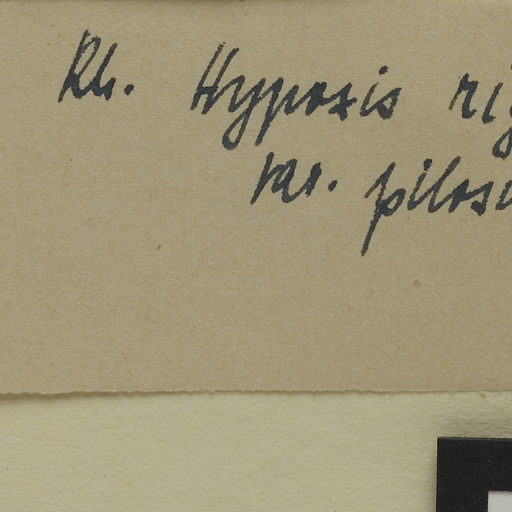 Rh. Hypoxis rig
var. pilos